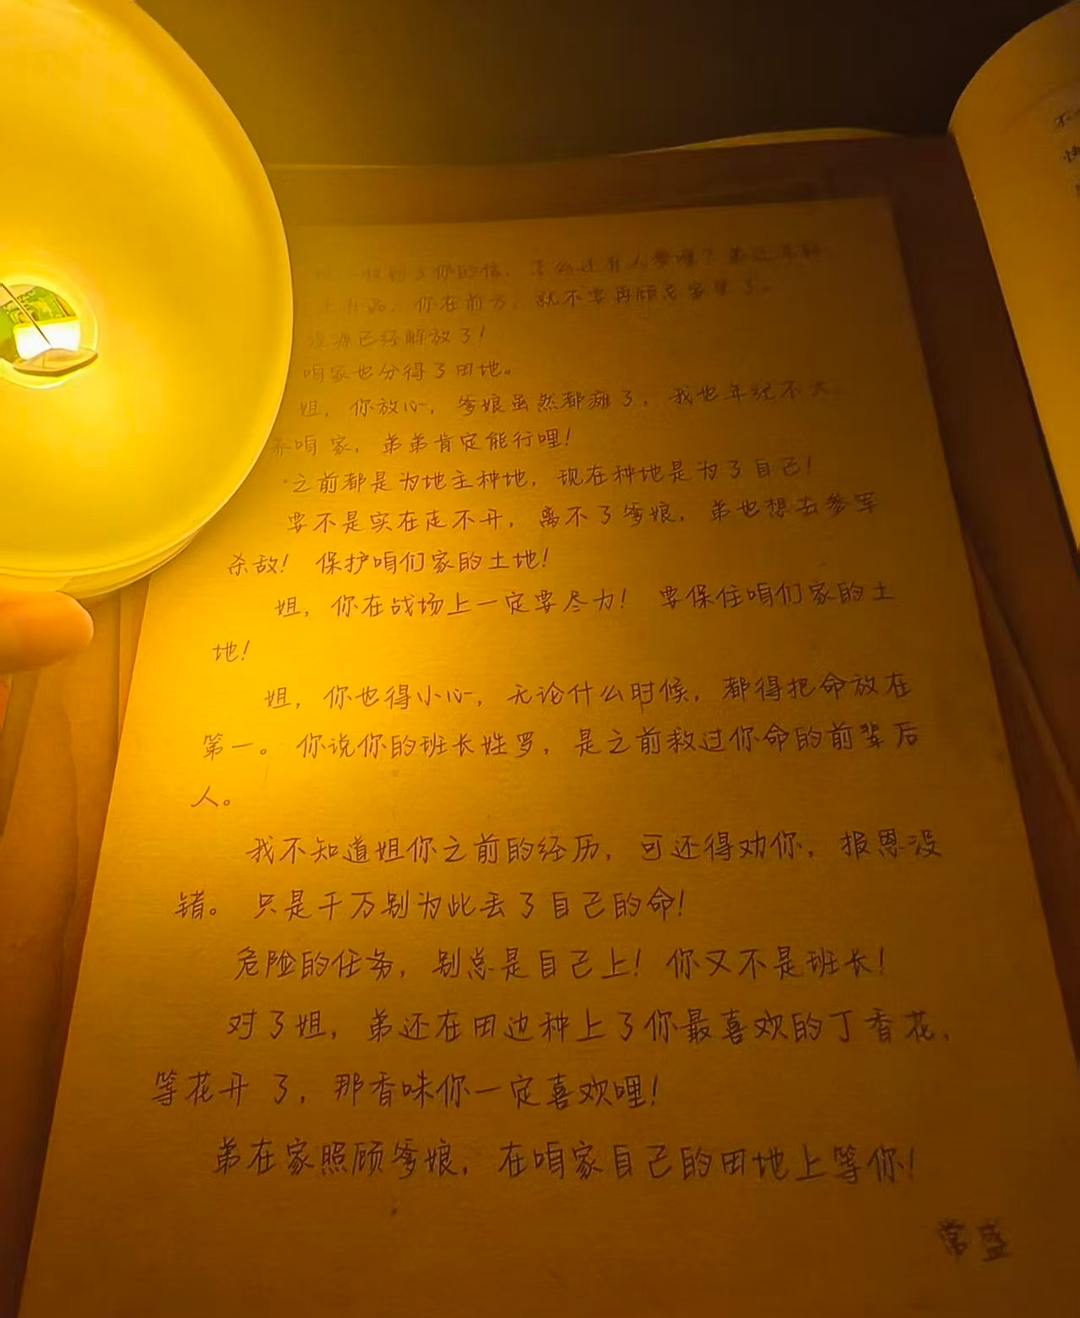 收到了你的信，怎么还有人要嘿？弟还年轻
你在前方，就不要再顾忌家里了。
已经解放了！
咱家也分得了田地。
姐，你放心，爹娘虽然都瘫了，我也年纪不大
咱家，弟弟肯定能行哩！
之前都是为地主种地，现在种地是为了自己！
要不是实在走不开，离不了爹娘，弟也想去参军
杀敌！保护咱们家的土地！
姐，你在战场上一定要尽力！要保住咱们家的土
地！
姐，你也得小心，无论什么时候，都得把命放在
第一。你说你的班长姓罗，是之前救过你命的前辈后
人。
我不知道姐你之前的经历，可还得劝你，报恩没
错。只是千万别为此丢了自己的命！
危险的任务，别总是自己上！你又不是班长！
对了姐，弟还在田边种上了你最喜欢的丁香花，
等花开了，那香味你一定喜欢哩！
弟在家照顾爹娘，在咱家自己的田地上等你！
常盛